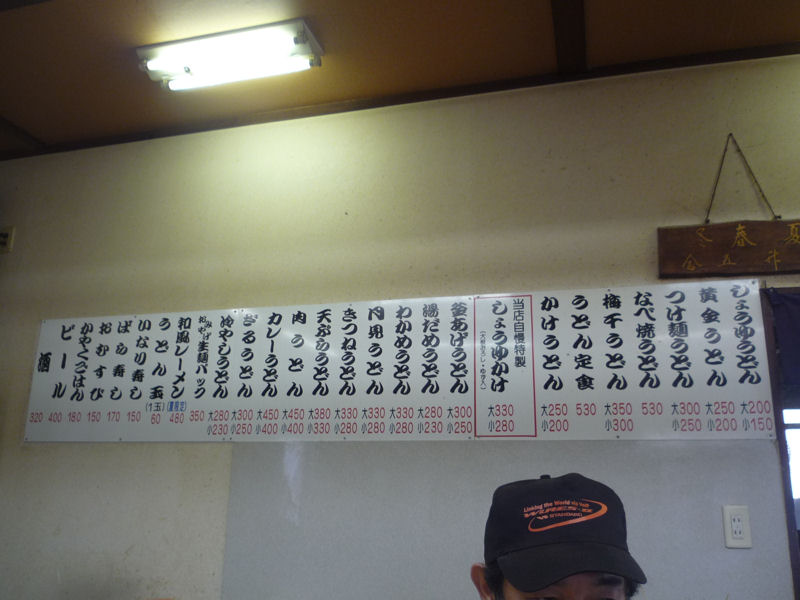 夏
春
冬
升
五
合
しょうゆうどん 大200 小150
黄金うどん 大250 小200
つけ麺うどん 大300 小250
なべ焼うどん 530
梅干うどん 大350 小300
うどん定食 530
かけうどん 大250 小200
当店自慢特製
しょうゆかけ
大330 小280
釜あげうどん 大300 小250
湯だめうどん 大280 小230
わかめうどん 大330 小280
月見うどん 大330 小280
きつねうどん 大330 小280
天ぷらうどん 大380 小330
肉うどん 大450 小400
カレーうどん 大450 小400
ざるうどん 大300 小250
冷やしうどん 大280 小230
おみやげ生麺パック 350
和風レーメン (夏限定) 480
うどん玉 (1玉) 60
いなり寿し 150
ばら寿し 170
おむすび 150
かやくごはん 180
ビール 400
酒 320
Linking the World via Voip
WIRES-II
V6 STANDARD